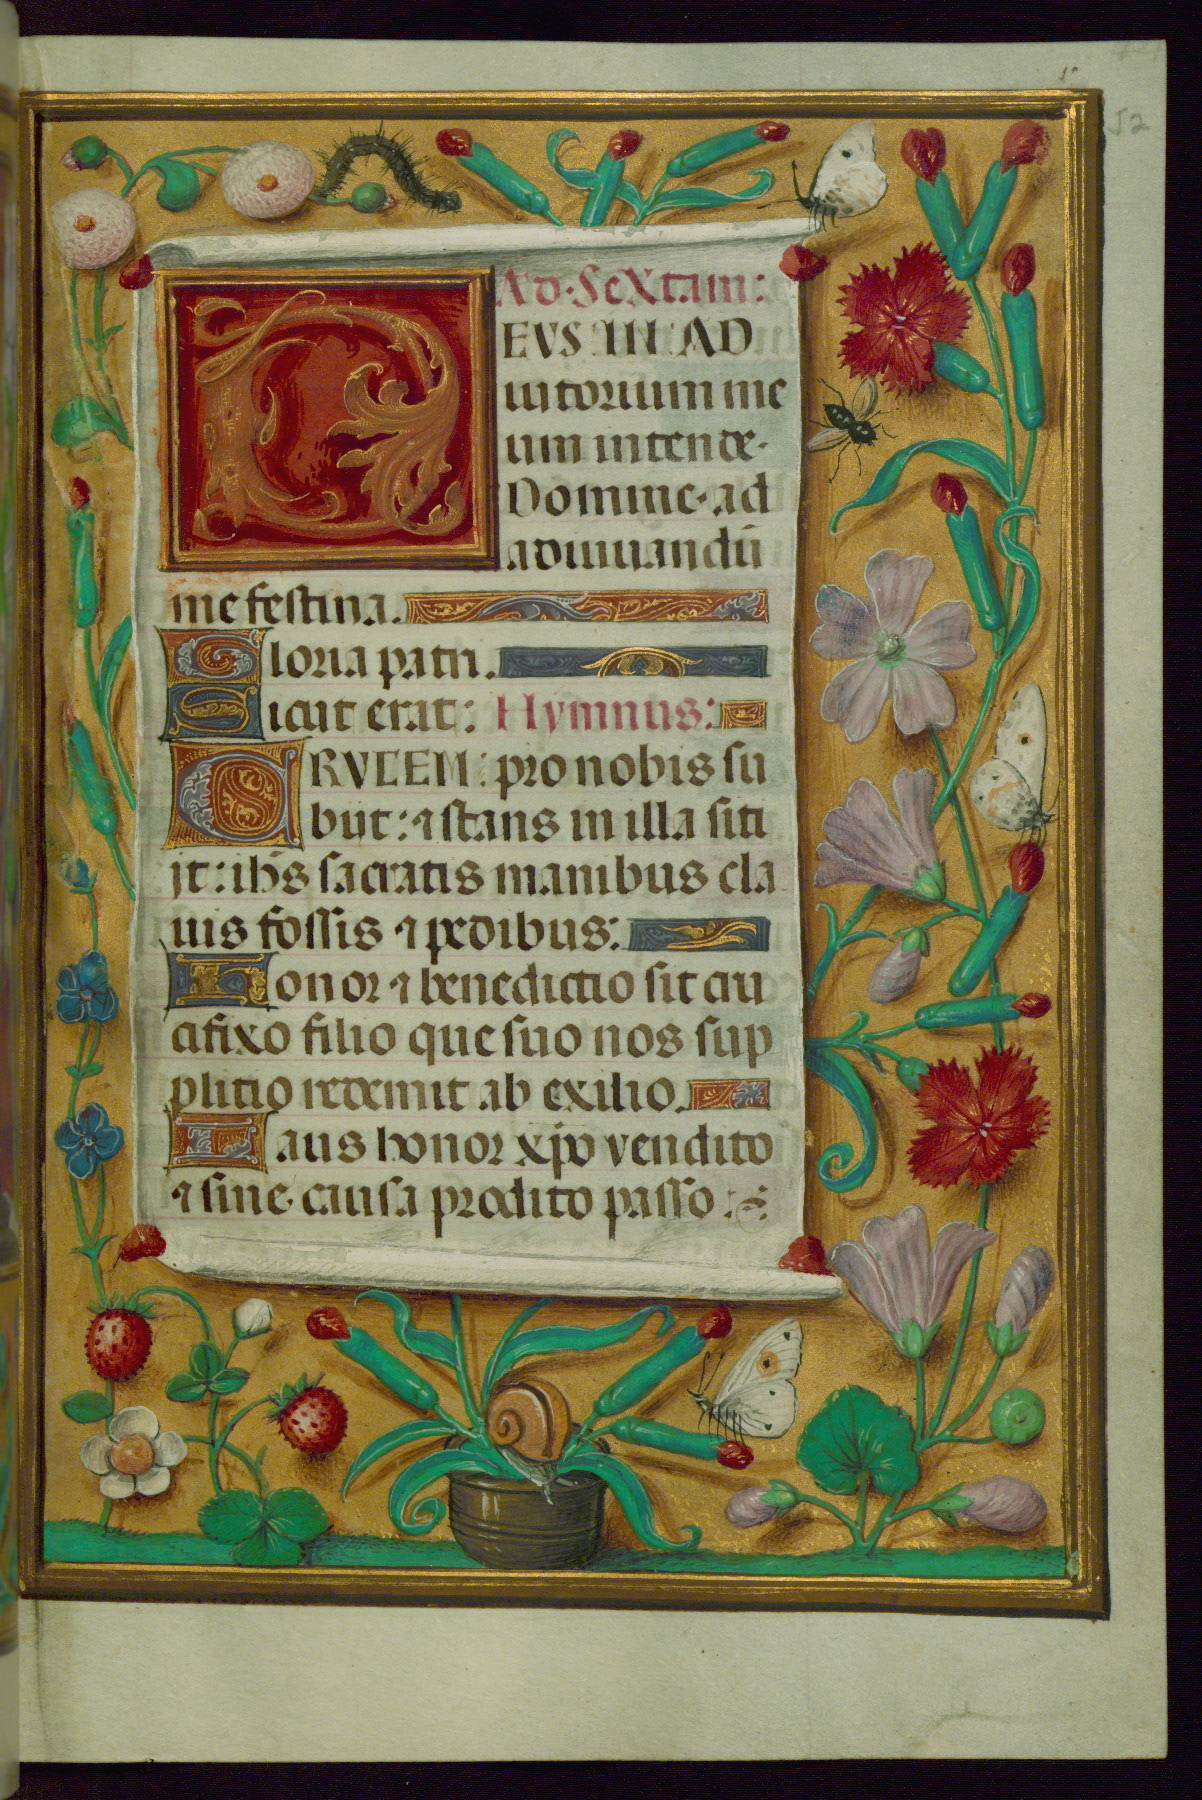 52
Ad·Sextam:
DEVS IN AD
iutorium me
um intende·
Domine·ad
adiuuandū
me festina.
Gloria patri.
Sicut erat: Hymnus:
CRVCEM: pro nobis su
but: ⁊ stans in illa siti
jt: ihs̄ sacratis manibus cla
uis fossis ⁊ pedibus:
Honor ⁊ benedictio sit cru
cifixo filio que suo nos sup
plitio redemit ab exilio.
Laus honor xp̄o vendito
⁊ sine causa prodito passo :